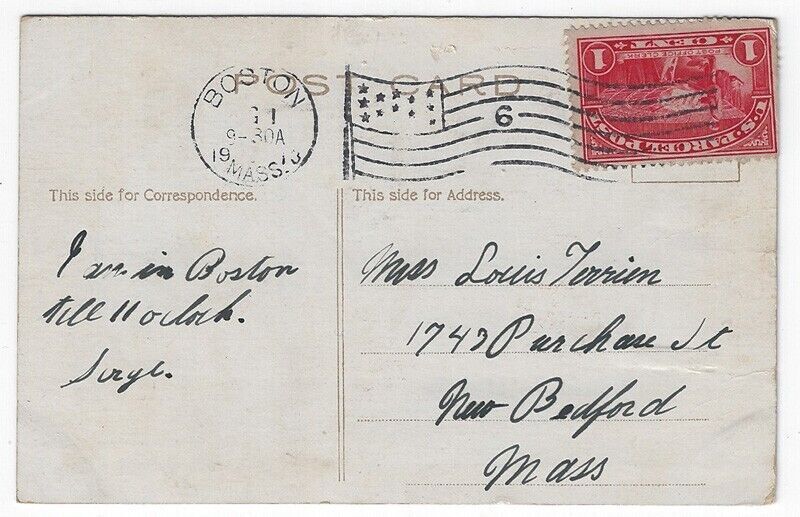 POST CARD
BOSTON
1
9-30A
1913
MASS.
6
1 1
POST OFFICE CLERK
CENT
U.S. PARCEL POST
This side for Correspondence.
I am in Boston
till 11 oclock.
This side for Address.
Miss Louis Terrien
1743 Purchase St
New Bedford
Mass